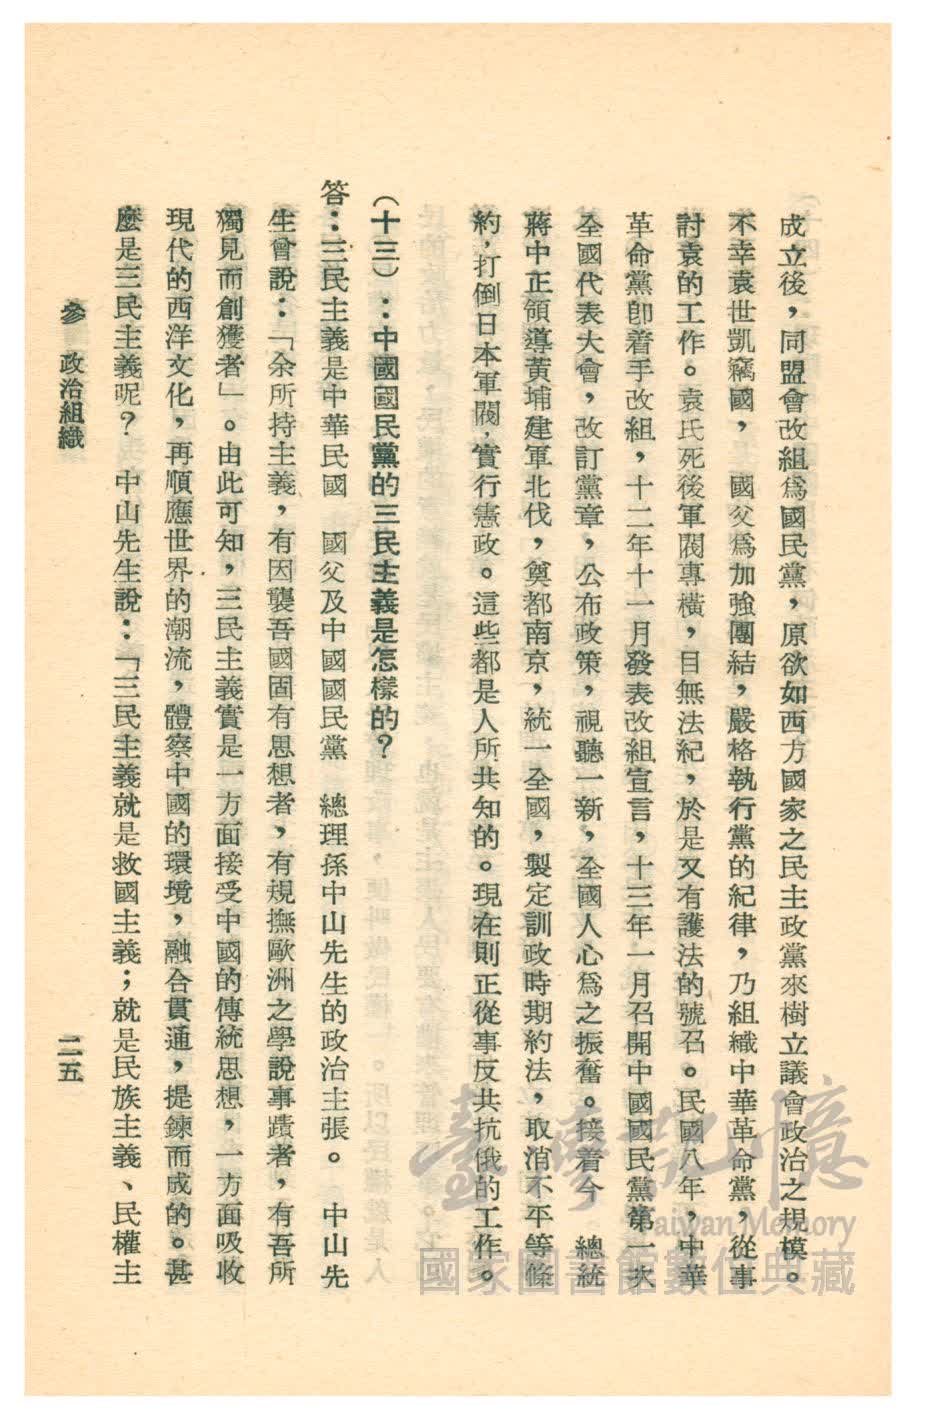 成立後，同盟會改組爲國民黨，原欲如西方國家之民主政黨來樹立議會政治之規模。
不幸袁世凱竊國，　國父爲加強團結，嚴格執行黨的紀律，乃組織中華革命黨，從事
討袁的工作。袁氏死後軍閥專橫，目無法紀，於是又有護法的號召。民國八年，中華
革命黨卽着手改組，十二年十一月發表改組宣言，十三年一月召開中國國民黨第一次
全國代表大會，改訂黨章，公布政策，視聽一新，全國人心爲之振奮。接着今　總統
蔣中正領導黃埔建軍北伐，奠都南京，統一全國，製定訓政時期約法，取消不平等條
約，打倒日本軍閥，實行憲政。這些都是人所共知的。現在則正從事反共抗俄的工作。
（十三）：中國國民黨的三民主義是怎樣的？
答：三民主義是中華民國　國父及中國國民黨　總理孫中山先生的政治主張。　中山先
生曾說：「余所持主義，有因襲吾國固有思想者，有規撫歐洲之學說事蹟者，有吾所
獨見而創獲者」。由此可知，三民主義實是一方面接受中國的傳統思想，一方面吸收
現代的西洋文化，再順應世界的潮流，體察中國的環境，融合貫通，提鍊而成的。甚
麼是三民主義呢？　中山先生說：「三民主義就是救國主義；就是民族主義、民權主
參　政治組織
二五
臺灣記憶
Taiwan Memory
國家圖書館數位典藏